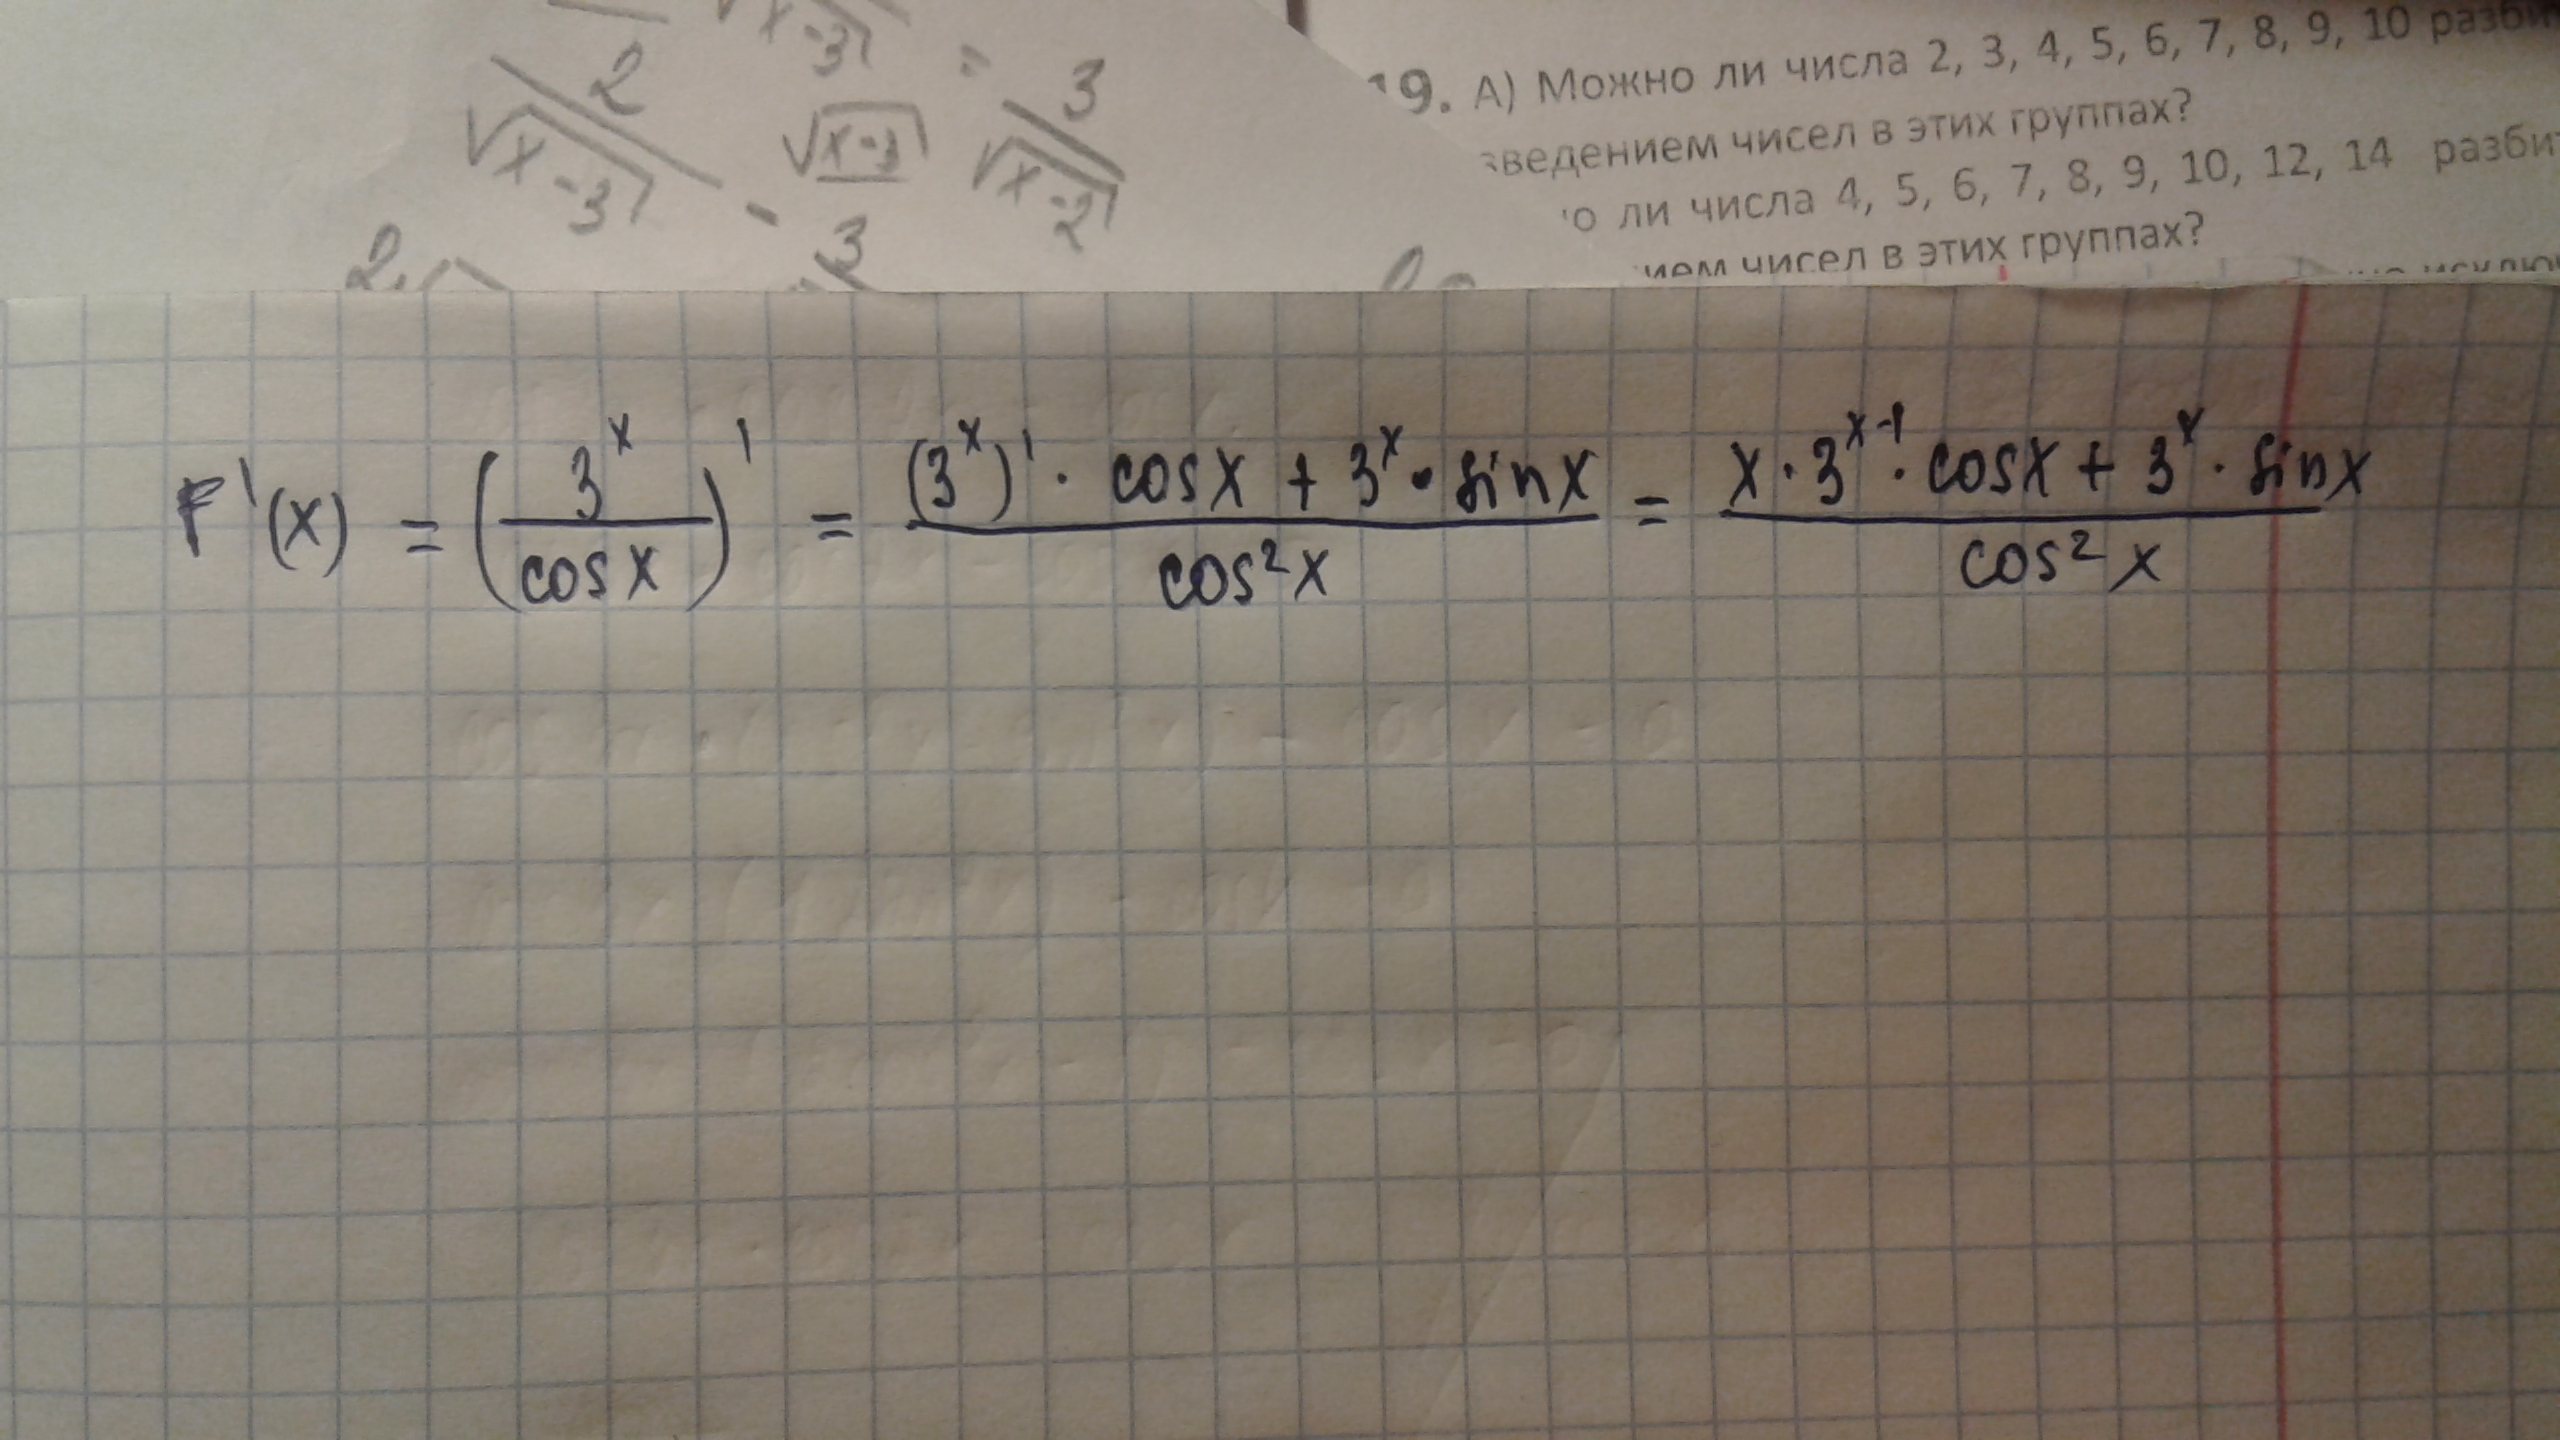 √x-3
2
√x-3 - √x-3 = 3
3 √x-2
2.
19. А) Можно ли числа 2, 3, 4, 5, 6, 7, 8, 9, 10
чисел в этих группах?
ли числа 4, 5, 6, 7, 8, 9, 10, 12, 14
чисел в этих группах?
F'(x) = (3^x / cos x)' = ((3^x)' · cos x + 3^x · sin x) / cos²x = (x · 3^(x-1) · cos x + 3^x · sin x) / cos²x